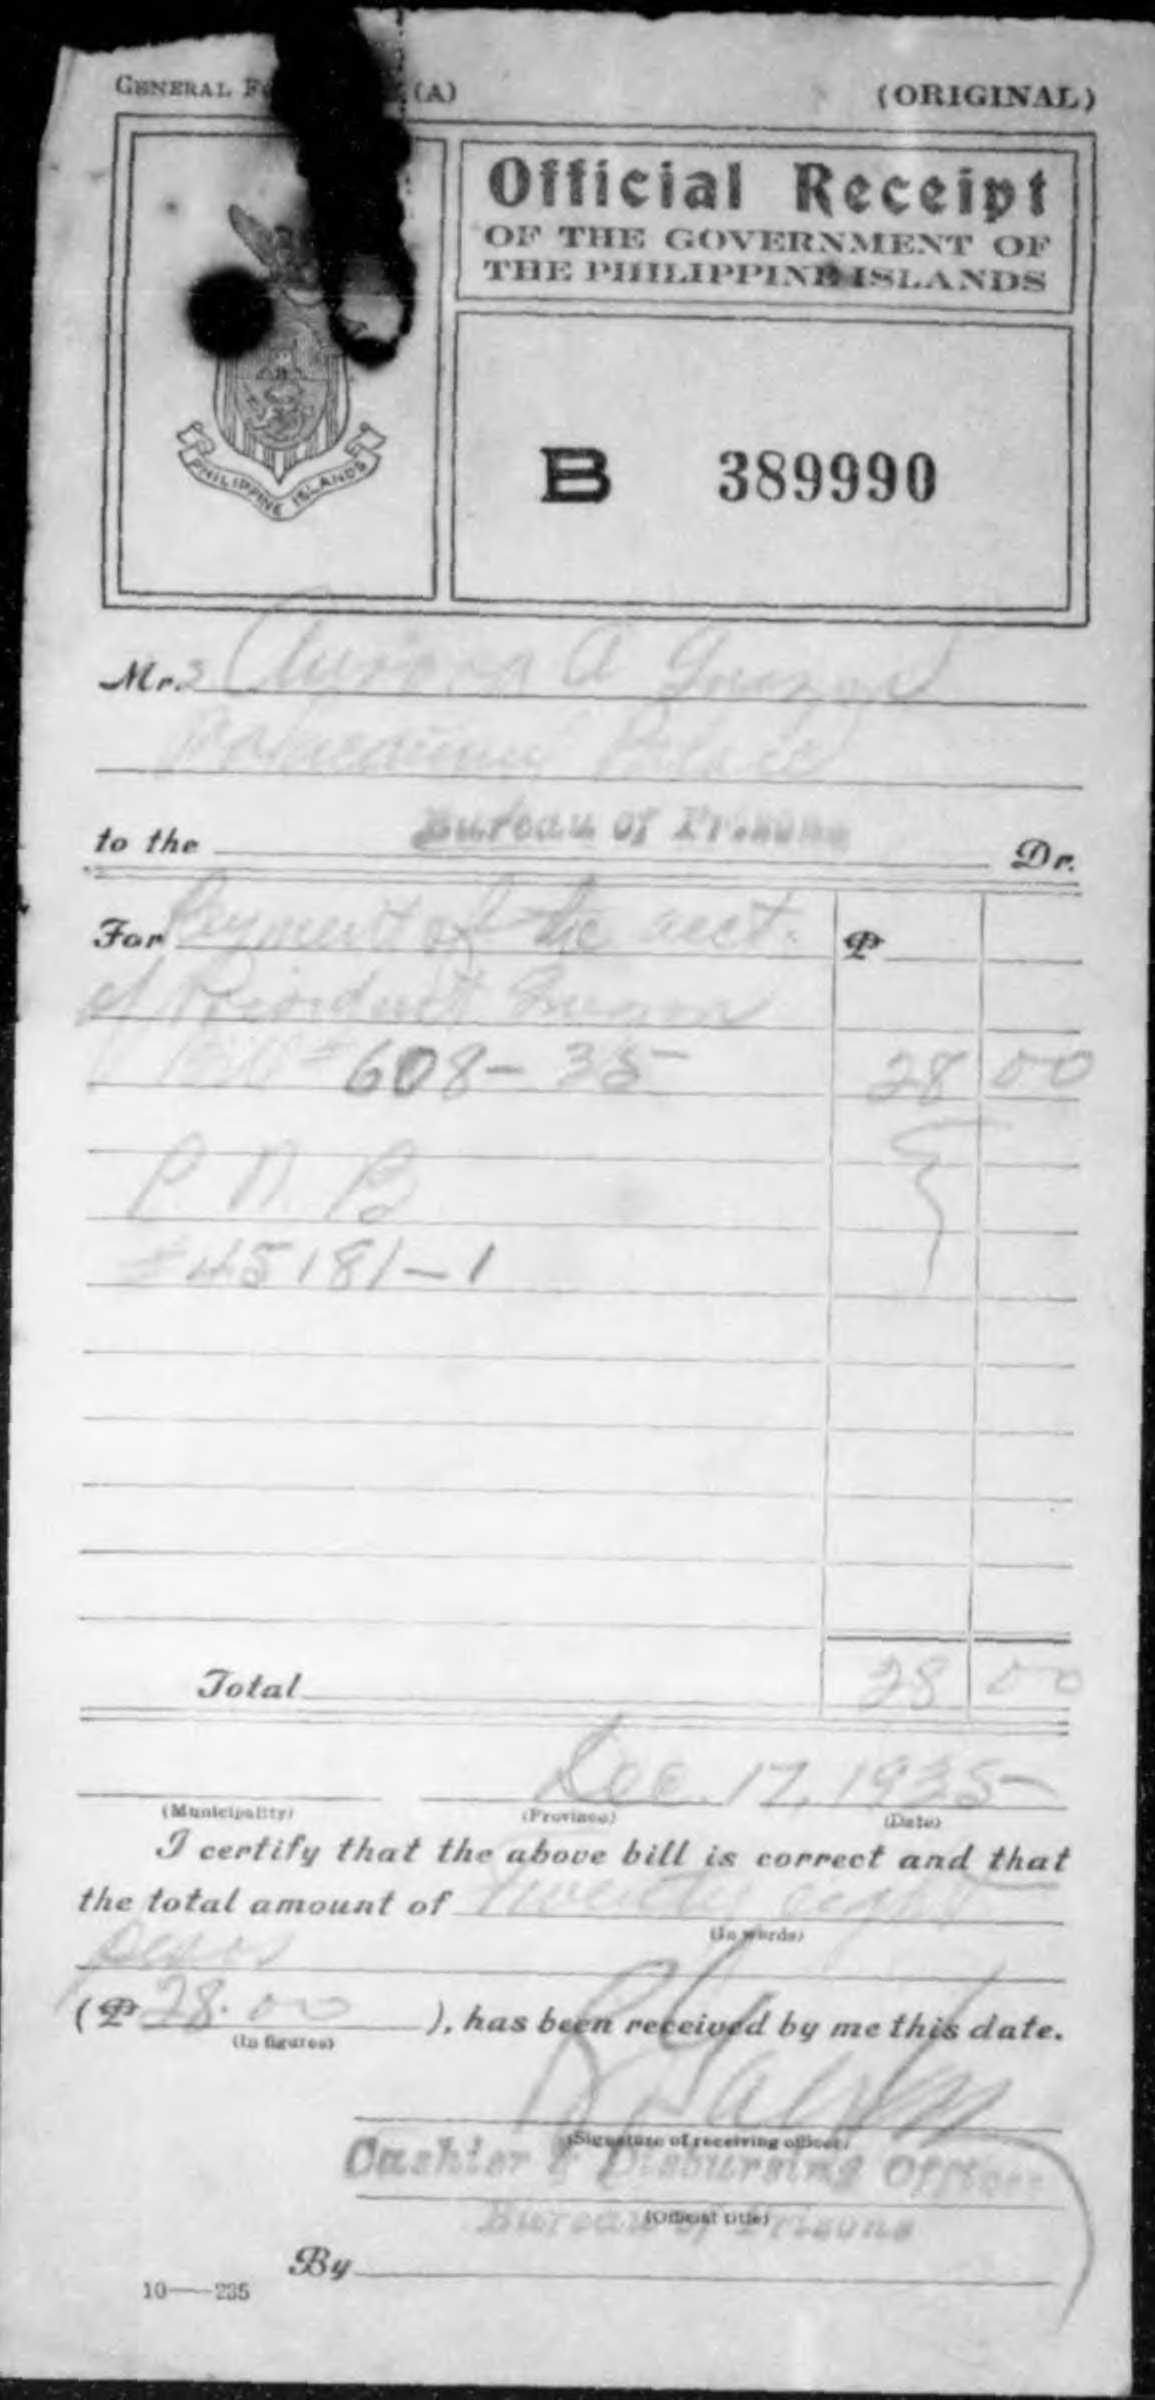 GENERAL (A)
(ORIGINAL)
Official Receipt
OF THE GOVERNMENT OF
THE PHILIPPINE ISLANDS
PHILIPPINE ISLANDS
B 389990
Mrs Aurora A Quezon
Palace
to the Bureau of Prisons Dr.
For Payment of the acct. ₱
of President Quezon
Bill # 608-35 28 00
P. N. B
#45181-1
Total 28 00
Dec. 17, 1935
(Municipality) (Province) (Date)
I certify that the above bill is correct and that
the total amount of Twenty eight
(In words)
pesos
(₱ 28.00 ), has been received by me this date.
(In figures)
(Signature of receiving officer)
Cashier & Disbursing Officer
(Official title)
Bureau of Prisons
By
10—235